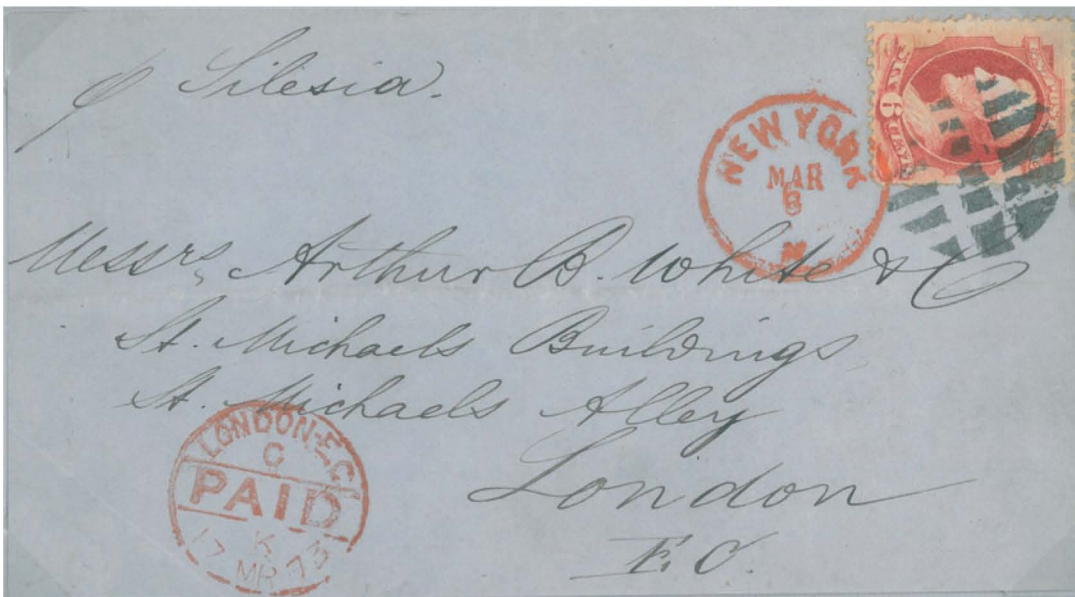 p Silesia.
NEW YORK
MAR
6
N
6
Messrs, Arthur B. White & Co
St. Michaels Buildings
St. Michaels Alley
London
E.C.
LONDON-E.C
C
PAID
K
17 MR 73